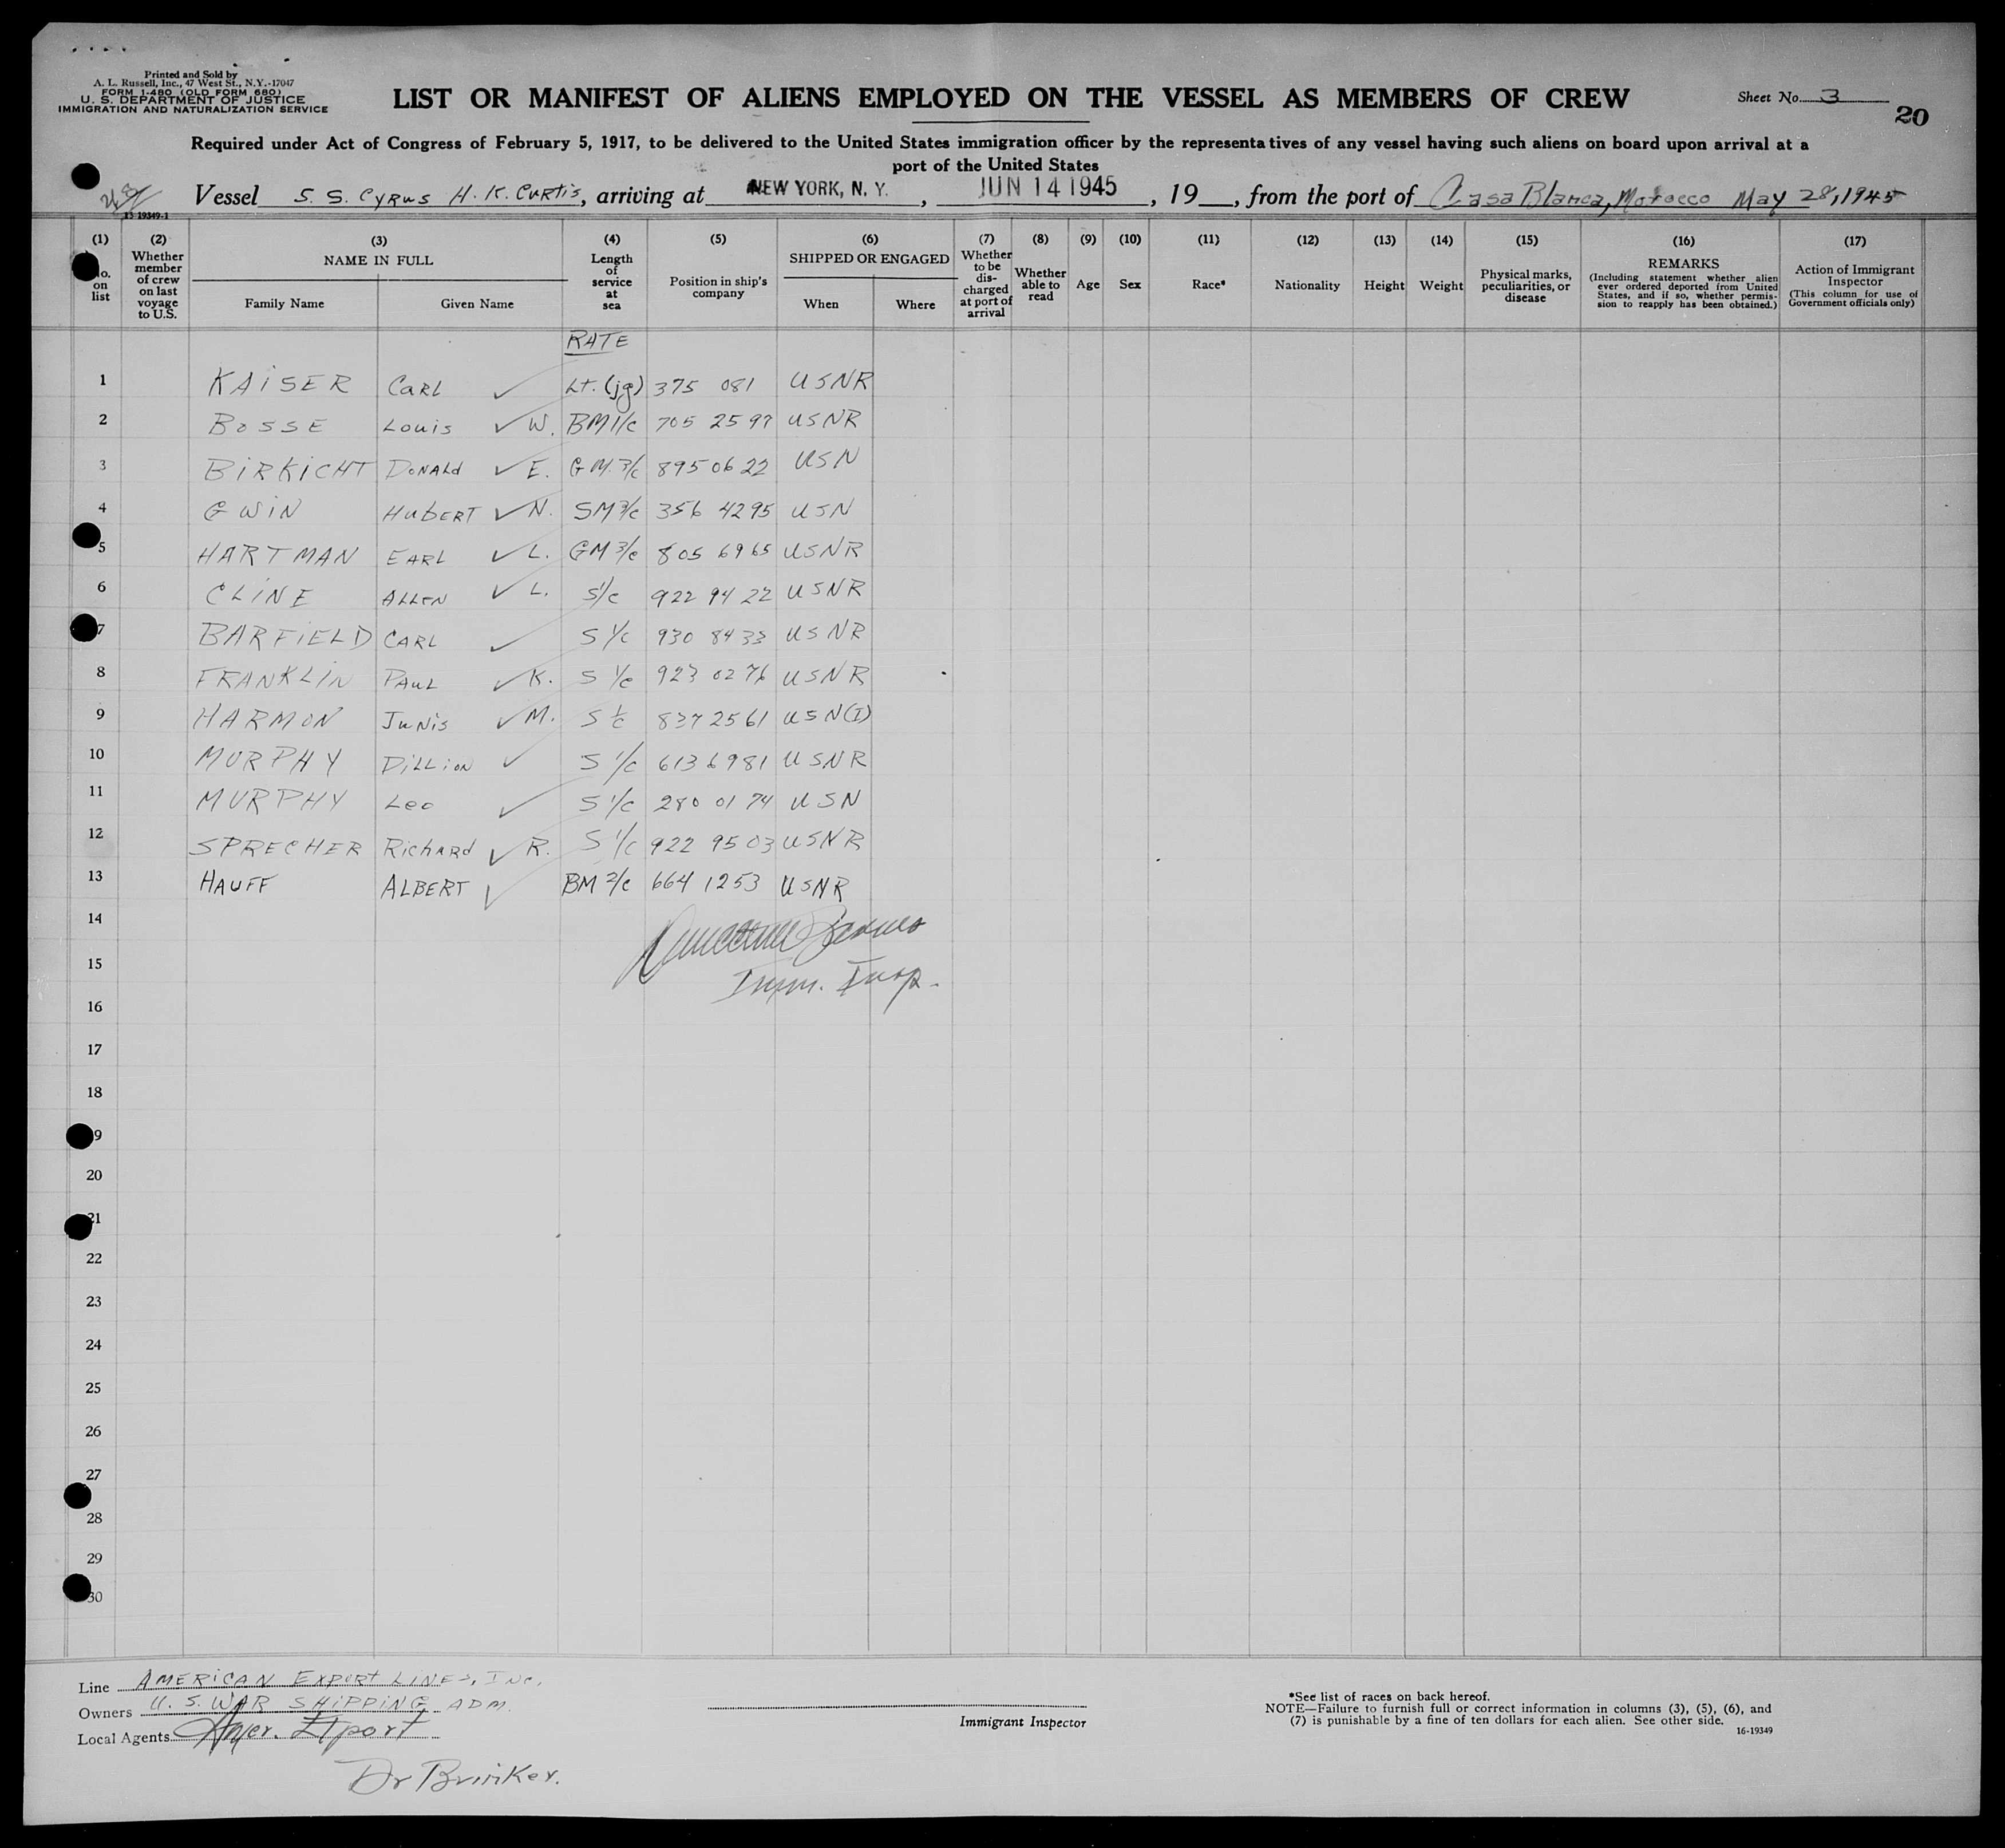 Printed and Sold by
A. L. Russell, Inc., 47 West St., N.Y.-17047
FORM I-480 (OLD FORM 680)
U. S. DEPARTMENT OF JUSTICE
IMMIGRATION AND NATURALIZATION SERVICE
LIST OR MANIFEST OF ALIENS EMPLOYED ON THE VESSEL AS MEMBERS OF CREW
Sheet No. 3
20
Required under Act of Congress of February 5, 1917, to be delivered to the United States immigration officer by the representatives of any vessel having such aliens on board upon arrival at a
port of the United States
Vessel S. S. Cyrus H. K. Curtis, arriving at NEW YORK, N. Y., JUN 14 1945, 19__, from the port of Casa Blanca, Morocco May 28, 1945
13 19349-1
(1) (2) (3) (4) (5) (6) (7) (8) (9) (10) (11) (12) (13) (14) (15) (16) (17)
No. on list
Whether member of crew on last voyage to U.S.
NAME IN FULL
Family Name Given Name
Length of service at sea
Position in ship's company
SHIPPED OR ENGAGED
When Where
Whether to be discharged at port of arrival
Whether able to read
Age
Sex
Race*
Nationality
Height
Weight
Physical marks, peculiarities, or disease
REMARKS
(Including statement whether alien ever ordered deported from United States, and if so, whether permission to reapply has been obtained.)
Action of Immigrant Inspector
(This column for use of Government officials only)
RATE
1 KAISER CARL ✓ Lt. (jg) 375 081 USNR
2 BOSSE Louis ✓ W. BM1/c 705 25 97 USNR
3 BIRKICHT DONALD ✓ E. GM 3/c 895 06 22 USN
4 GWIN HUBERT ✓ N. SM3/c 356 4295 USN
5 HARTMAN EARL ✓ L. GM3/c 805 6965 USNR
6 CLINE ALLEN ✓ L. S1/c 922 94 22 USNR
7 BARFIELD CARL ✓ S 1/c 930 8433 USNR
8 FRANKLIN PAUL ✓ K. S 1/c 923 0276 USNR
9 HARMON JUNIS ✓ M. S 1/c 837 2561 USN(I)
10 MURPHY DILLION ✓ S 1/c 613 6981 USNR
11 MURPHY Leo ✓ S 1/c 280 01 74 USN
12 SPRECHER Richard ✓ R. S 1/c 922 95 03 USNR
13 HAUFF ALBERT ✓ BM 2/c 664 1253 USNR
14
15 Imm. Insp.
16
17
18
19
20
21
22
23
24
25
26
27
28
29
30
Line AMERICAN EXPORT LINES, INC.
Owners U. S. WAR SHIPPING ADM.
Local Agents Amer. Export
Dr Brinker.
Immigrant Inspector
*See list of races on back hereof.
NOTE—Failure to furnish full or correct information in columns (3), (5), (6), and
(7) is punishable by a fine of ten dollars for each alien. See other side.
16-19349